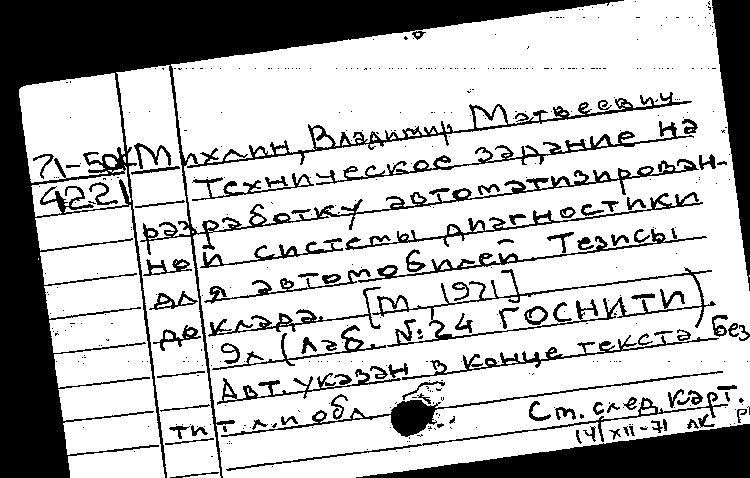 71-50К Михлин, Владимир Матвеевич
4221 Техническое задание на
разработку автоматизирован-
ной системы диагностики
для автомобилей. Тезисы
доклада. [М., 1971]
9л. (Лаб. №24 ГОСНИТИ).
Авт. указан в конце текста. Без
тит. л. и обл.
См. след. карт.
14/XII-71 ЛК